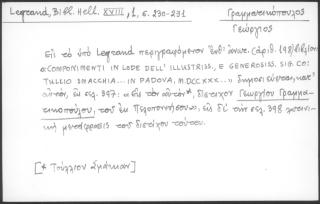 Legrand, Bibl. Hell. XVIII, 1, σ. 230-231
Γραμματικόπουλος
Γεώργιος
Εἰς τὸ ὑπὸ Legrand περιγραφόμενον (ἀρ. 198) βιβλίον
«COMPONIMENTI IN LODE DELL' ILLUSTRISS., E GENEROSISS. SIG. CO:
TULLIO SMACCHIA... IN PADOVA, M.DCC.XXX...»,
ἐν σελ. 397: «εἰς τὸν αὐτὸν*, δίστιχον Γεωργίου Γραμμα-
τικοπούλου, τοῦ ἐκ Πελοποννήσου», ἐν δὲ τῇ σελ. 398 λατινι-
κὴ μετάφρασις τοῦ διστίχου τούτου.
[* Τούλλιον Σμάκιαν]